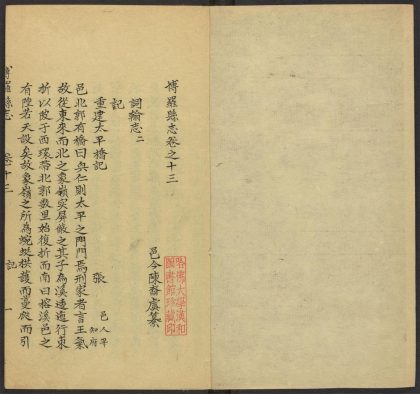 博羅縣志卷之十三
邑令陳裔虞纂
詞翰志二
記
重建太平橋記
張 邑人 知府
邑北郭有橋曰與仁則太平之門門焉刑家者言王氣
故從東來而北之象嶺實屏蔽之其子為溪透迤行東
折以陂于西環帶北郭數里始復折而南曰榕溪邑之
有隍若天設矣故象嶺之所為蜿蜒拱護而蔓衍而引
博羅縣志 卷十三 記 一
哈佛大學漢和圖書館珍藏印